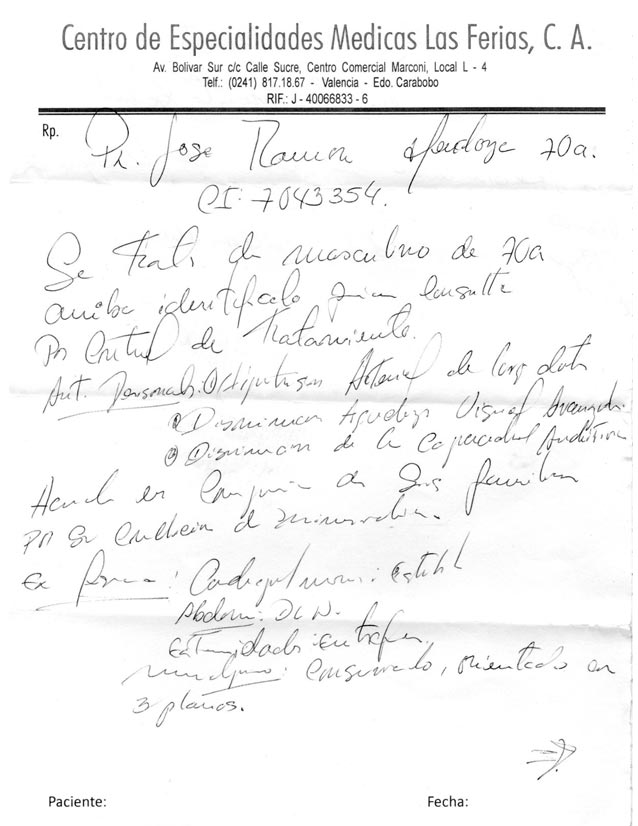 Centro de Especialidades Medicas Las Ferias, C. A.
Av. Bolivar Sur c/c Calle Sucre, Centro Comercial Marconi, Local L - 4
Telf.: (0241) 817.18.67 - Valencia - Edo. Carabobo
RIF.: J - 40066833 - 6
Rp.
Jose Ramon 70a.
CI: 7043354.
Se trata de masculino de 70a
arriba identificado quien consulta
por Control de Tratamiento.
Ant. Personales: Hipertension Arterial de larga data
Disminucion Agudeza Visual Avanzada
Disminucion de la Capacidad Auditiva
Acude en Compañia de sus familiares
por su Condicion de
Ex : Cardiopulmonar: Estable
Abdomen: DLN.
Extremidades:
Conservado, orientado en
3 planos.
Paciente: Fecha: